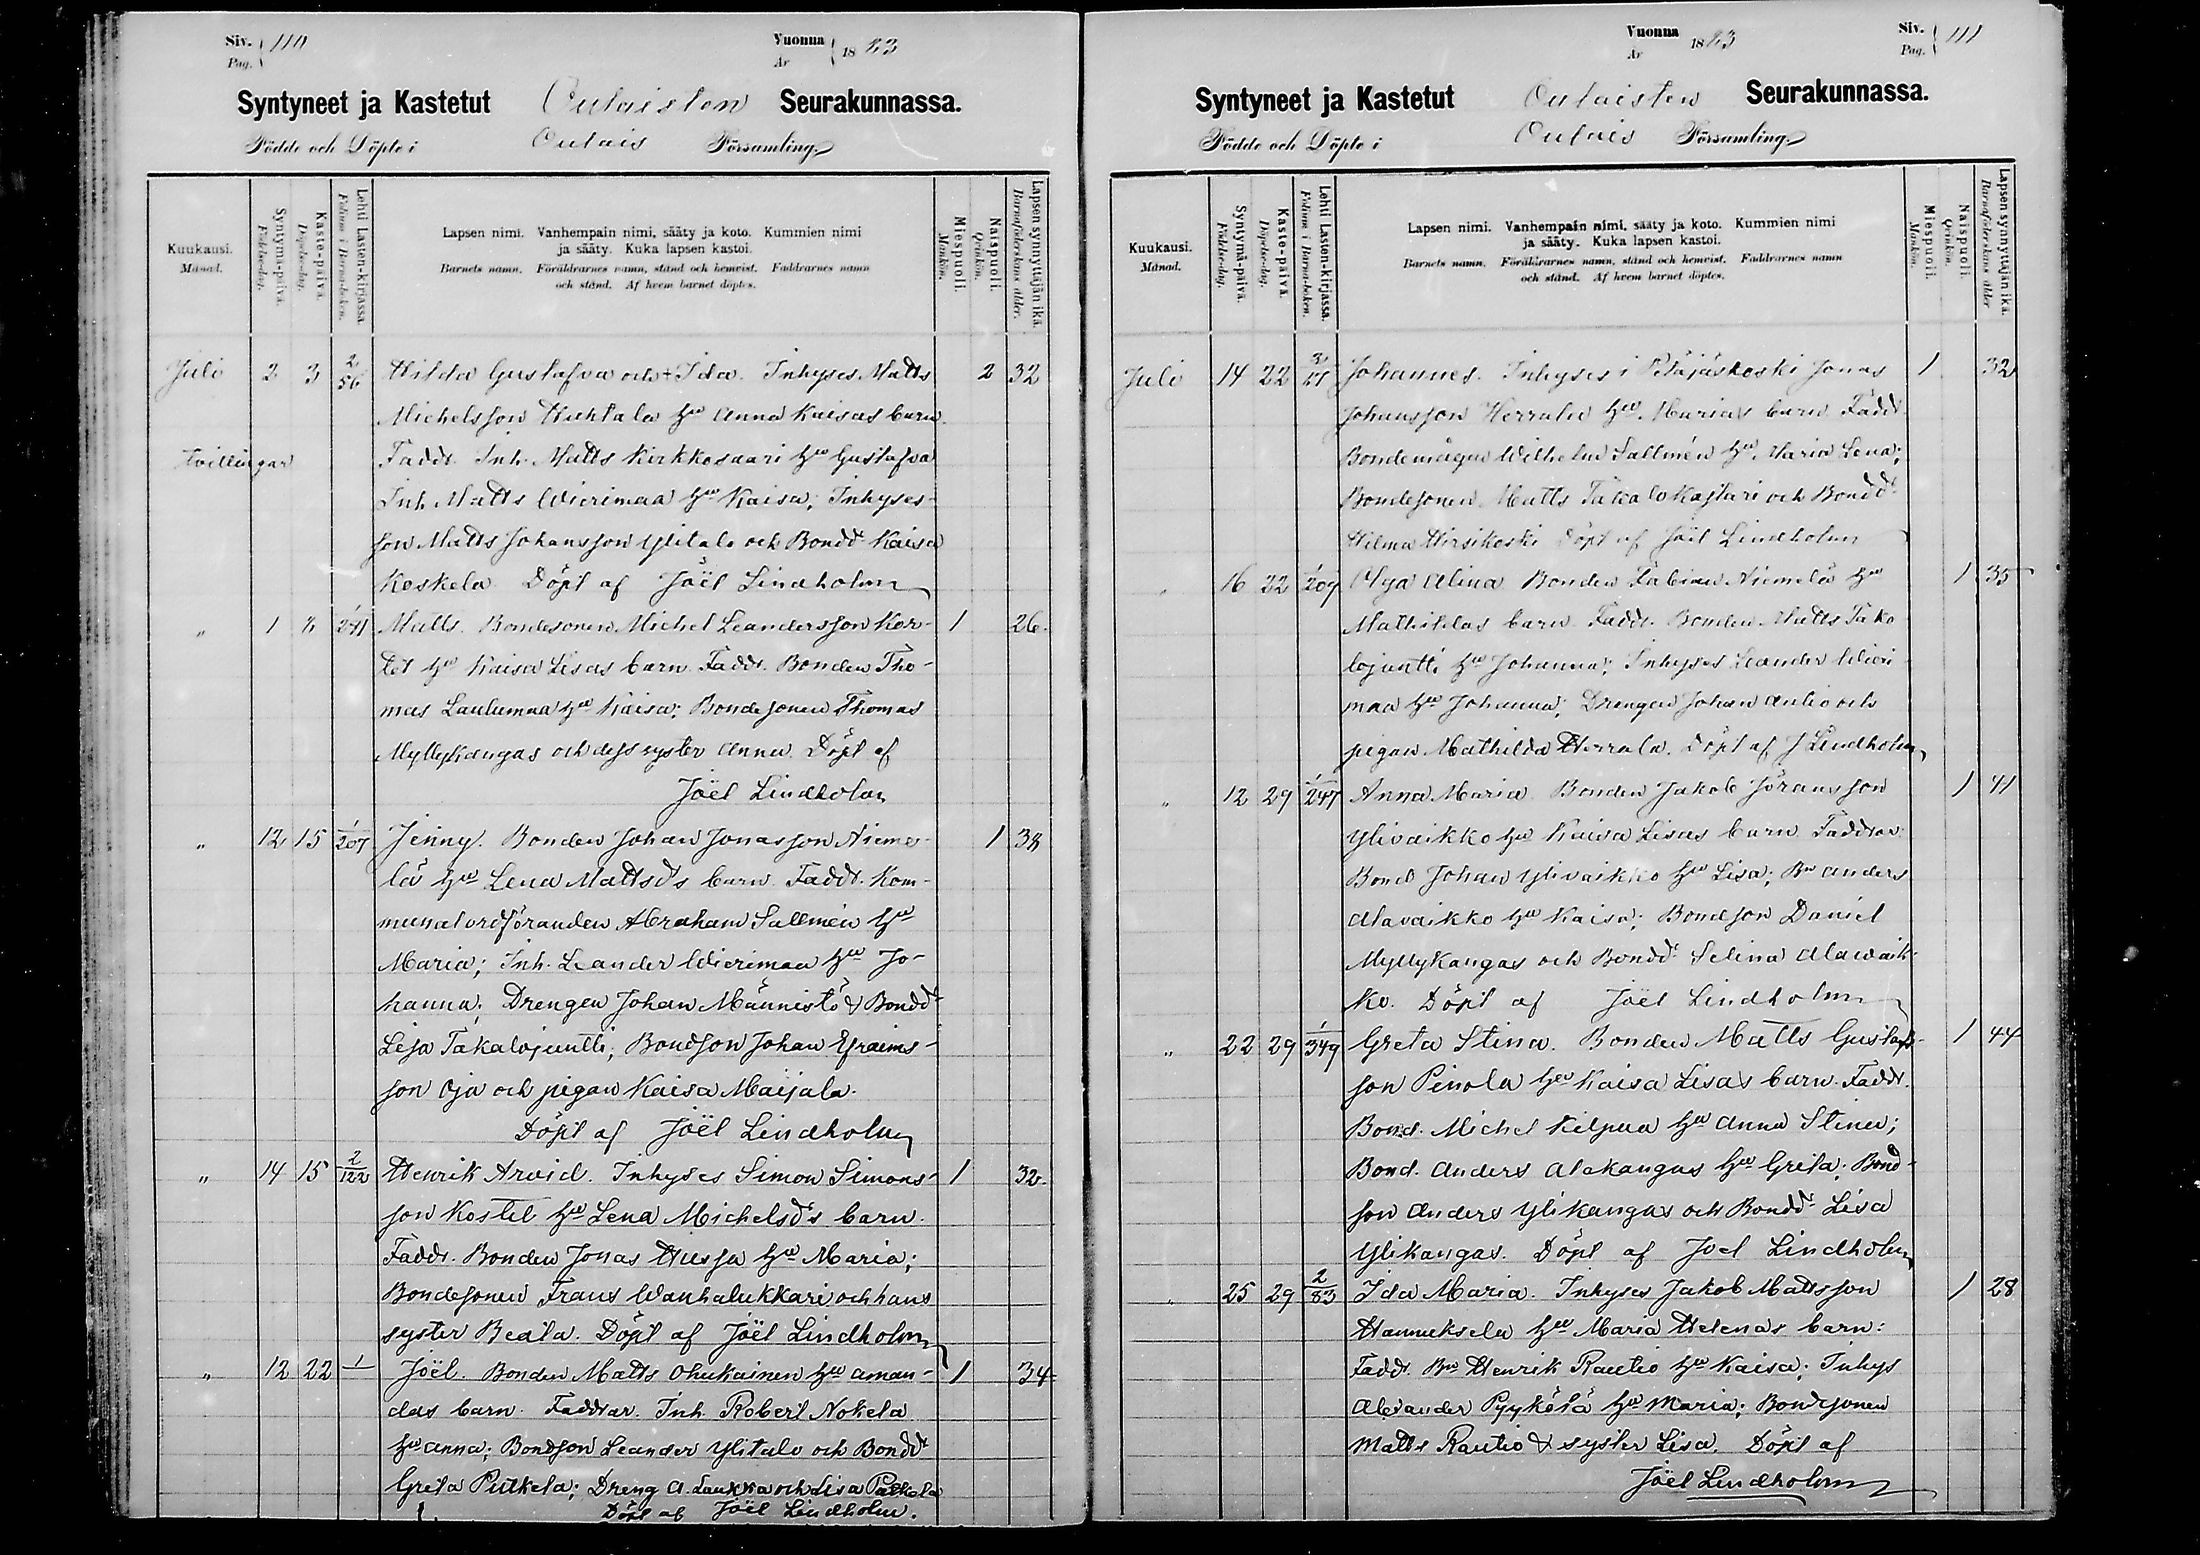 Siv. 110
Pag.
Vuonna
År 1883
Syntyneet ja Kastetut Oulaisten Seurakunnassa.
Födde och Döpte i Oulais Församling
Kuukausi.
Månad.
Syntymä-päivä.
Födelse-dag.
Kaste-päivä.
Döpelse-dag.
Lehti Lasten-kirjassa.
Folium i Barna-boken.
Lapsen nimi. Vanhempain nimi, sääty ja koto. Kummien nimi
ja sääty. Kuka lapsen kastoi.
Barnets namn. Föräldrarnes namn, stånd och hemvist. Faddrarnes namn
och stånd. Af hvem barnet döptes.
Miespuoli.
Mankön.
Naispuoli.
Qvinkön.
Lapsen synnyttäjän ikä.
Barnaföderskans ålder.
Juli 2 3 2/56 Hilda Gustafva och Ida. Inhyses Matts 2 32
Michelsson Huhtala hu Anna Kaisas barn.
Tvillingar Faddr. Inh. Matts Kirkkosaari hu Gustafva
Inh. Matts Wierimaa hu Kaisa; Inhyses-
son Matts Johansson Ylitalo och Bondd. Kaisa
Koskela. Döpt af Joël Lindholm
" 1 8 1/241 Matts. Bondesonen Michel Leandersson Kor- 1 26.
tet hu Kaisa Lisas barn. Faddr. Bonden Tho-
mas Laulumaa hu Kaisa; Bondesonen Thomas
Myllykangas och dess syster Anna. Döpt af
Joël Lindholm
" 12 15 1/207 Jenny. Bonden Johan Jonasson Nieme- 1 38
lä hu Lena Mattsd's barn. Faddr. Kom-
munalordföranden Abraham Sallmén hu
Maria; Inh. Leander Wierimaa hu Jo-
hanna; Drengen Johan Männistö & Bondd.
Lisa Takalojuntti; Bondson Johan Efraims-
son Oja och pigan Kaisa Maijala.
Döpt af Joël Lindholm
" 14 15 2/122 Henrik Arvid. Inhyses Simon Simons- 1 32.
son Kostet hu Lena Michelsd's barn.
Faddr. Bonden Jonas Hussa hu Maria;
Bondesonen Frans Wanhalukkari och hans
syster Beata. Döpt af Joël Lindholm
" 12 22 1 Joël. Bonden Matts Ohukainen hu Aman- 1 34
das barn. Faddrar. Inh. Robert Nokela
hu Anna; Bondson Leander Ylitalo och Bondd.
Greta Pitkela; Dreng A. Laukka och Lisa
Döpt af Joël Lindholm.
Vuonna
År 1883
Siv. 111
Pag.
Syntyneet ja Kastetut Oulaisten Seurakunnassa.
Födde och Döpte i Oulais Församling
Kuukausi.
Månad.
Syntymä-päivä.
Födelse-dag.
Kaste-päivä.
Döpelse-dag.
Lehti Lasten-kirjassa.
Folium i Barna-boken.
Lapsen nimi. Vanhempain nimi, sääty ja koto. Kummien nimi
ja sääty. Kuka lapsen kastoi.
Barnets namn. Föräldrarnes namn, stånd och hemvist. Faddrarnes namn
och stånd. Af hvem barnet döptes.
Miespuoli.
Mankön.
Naispuoli.
Qvinkön.
Lapsen synnyttäjän ikä.
Barnaföderskans ålder
Juli 14 22 Johannes. Inhyses i Petäjäskoski Jonas 1 32
Johansson Herrala hu Marias barn. Faddr.
Bondemågen Wilhelm Sallmén hu Maria Lena;
Bondesonen Matts Takalo och Bondd.
Hilma Hirsikoski Döpt af Joël Lindholm
" 16 22 1/207 Olga Alina Bonden Fabian Niemelä hu 1 35
Mathildas barn. Faddr. Bonden Matts Taka
lojuntti hu Johanna; Inhyses Leander Wieri
maa hu Johanna; Drengen Johan Aulio och
pigan Mathilda Herrala. Döpt af J Lindholm
" 12 29 1/247 Anna Maria. Bonden Jakob Göransson 1 41
Ylivaikko hu Kaisa Lisas barn. Faddrar
Bond Johan Ylivaikko hu Lisa; Bn Anders
Alavaikko hu Kaisa; Bondson Daniel
Myllykangas och Bondd. Selina Alawaik-
ko. Döpt af Joël Lindholm
" 22 29 1/349 Greta Stina. Bonden Matts Gustafs- 1 44
son Pinola hu Kaisa Lisas barn. Faddr.
Bond. Michel Kilpua hu Anna Stina;
Bond. Anders Alakangas hu Greta; Bond-
son Anders Ylikangas och Bondd. Lisa
Ylikangas. Döpt af Joel Lindholm
" 25 29 2/83 Ida Maria. Inhyses Jakob Mattsson 1 28
Hannuksela hu Maria Helenas barn:
Faddr. Bn Henrik Rautio hu Kaisa; Inhys
Alexander Pyykölä hu Maria; Bondesonen
Matts Rautio & syster Lisa. Döpt af
Joël Lindholm